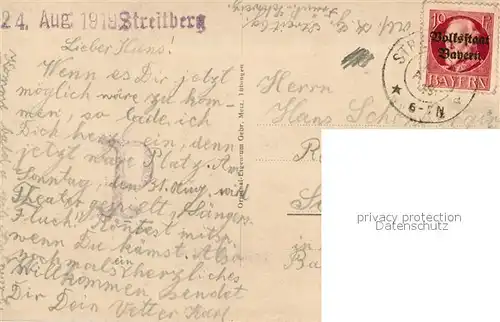 24. Aug. 1919 Streitberg
Lieber Hans!
Wenn es Dir jetzt
möglich wäre zu kom-
men, so lade ich
Dich herzl. ein, denn
jetzt wäre Platz. Am
Sonntag, den 31. Aug. wird
Theater gespielt, Sängers
Fluch. Könntest mitsp.
wenn Du kämst. Also
nochmals ein herzliches
Willkommen sendet
Dir Dein Vetter Karl
Original-Eigentum Gebr. Metz, Tübingen
Herrn
Hans
10
Volksstaat
Bayern
BAYERN
STR
6-7N
privacy protection
Datenschutz